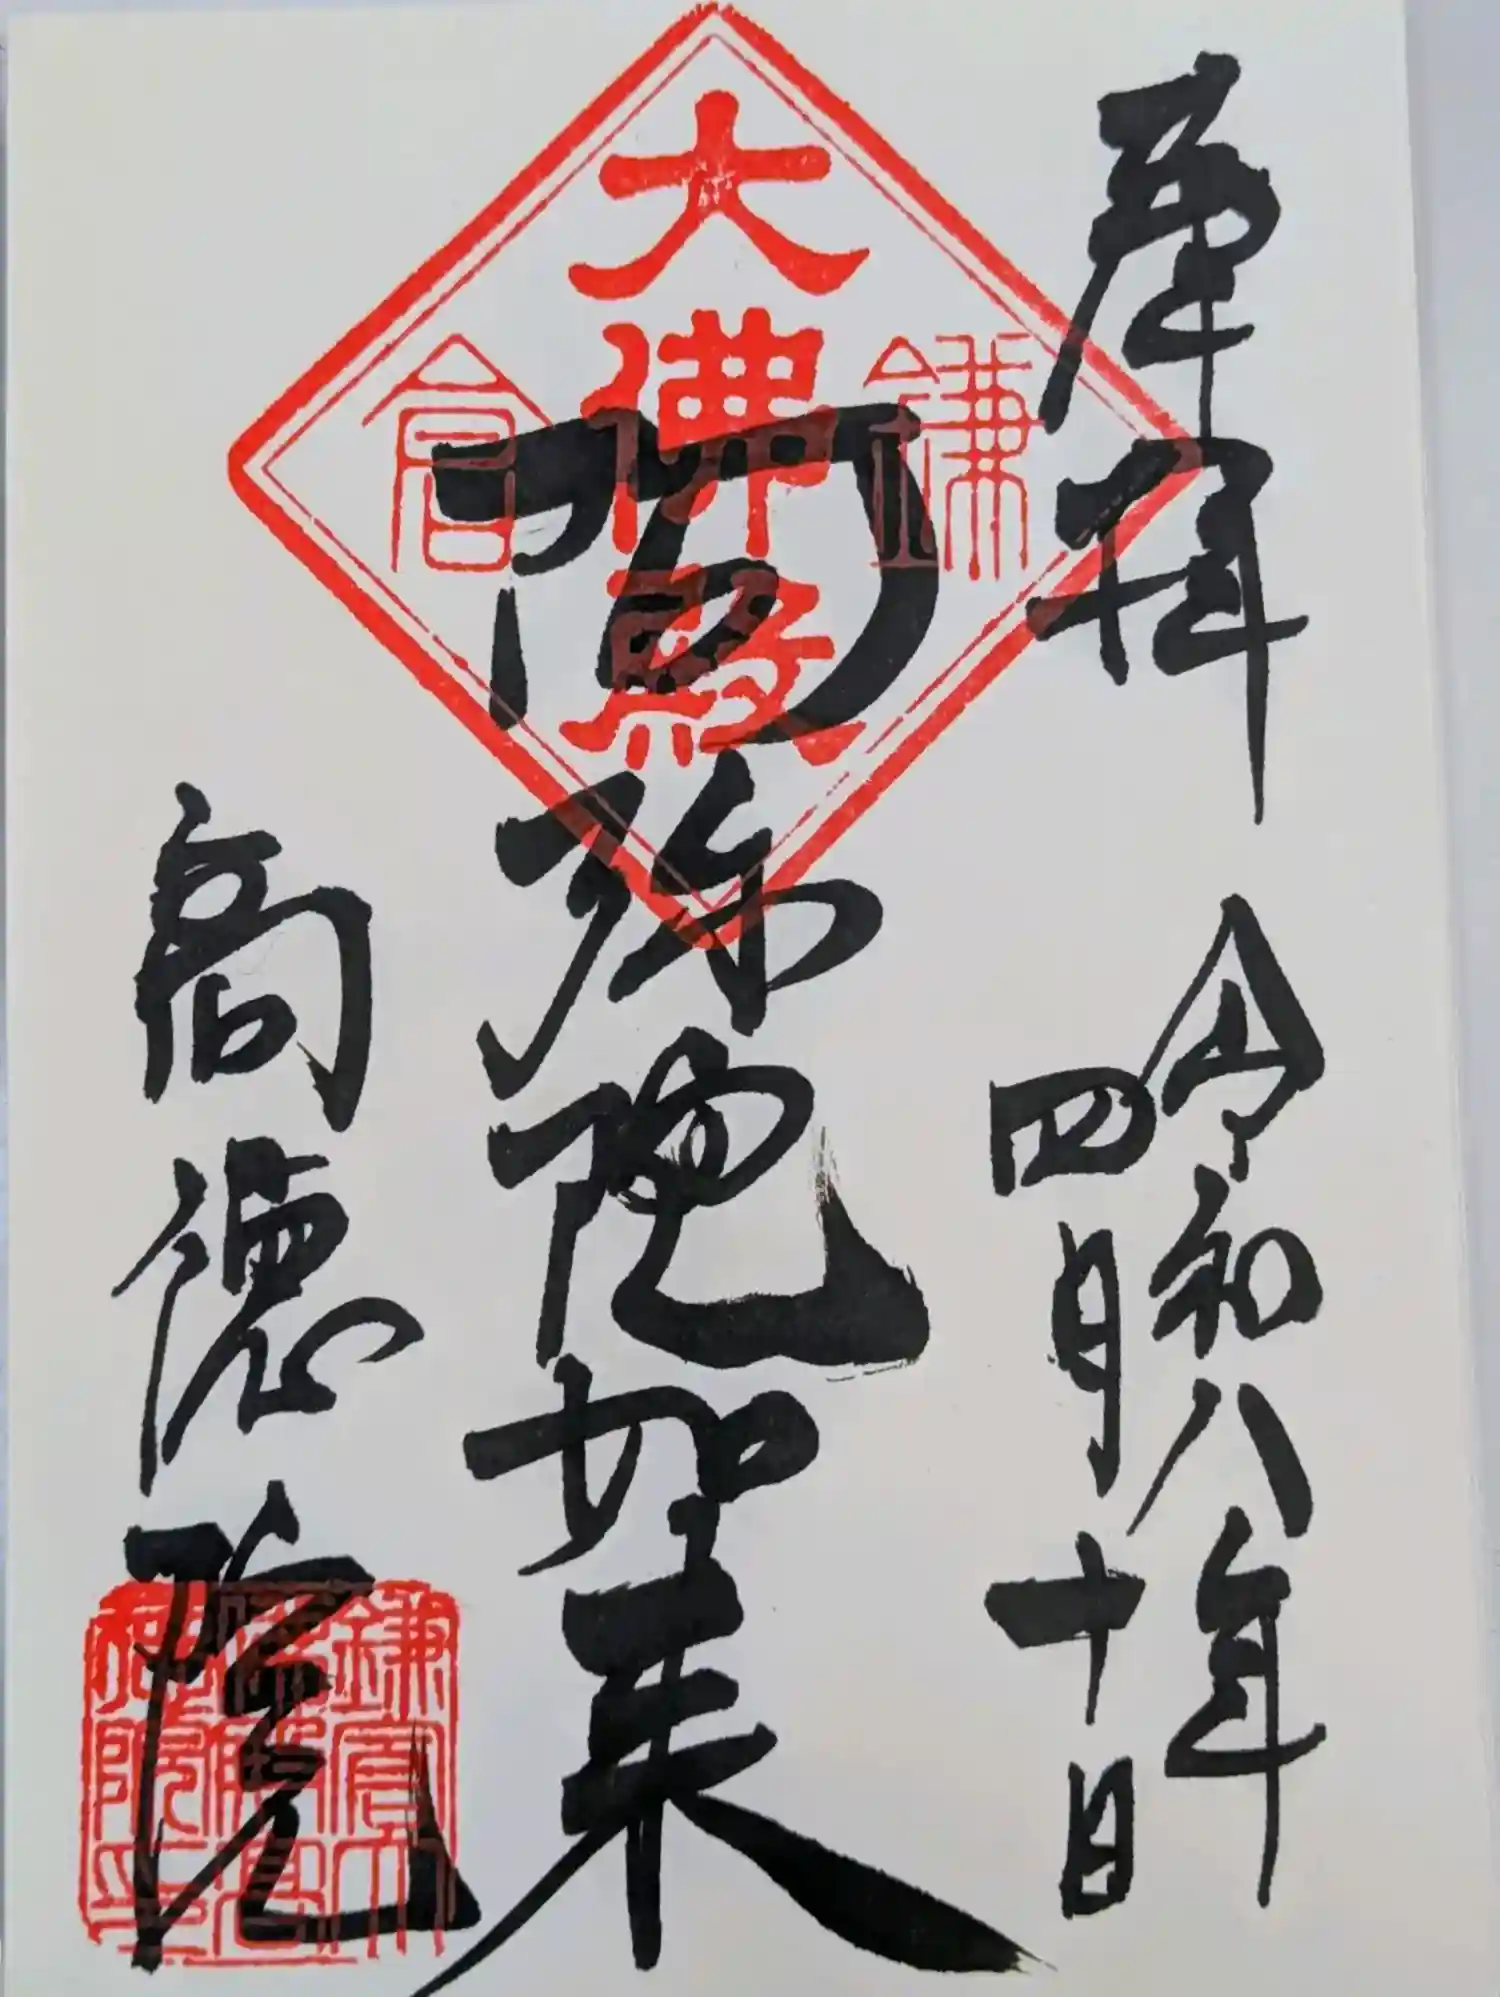 奉拝
令和八年
四月十日
大佛殿
鎌倉
阿弥陀如来
高徳院
鎌倉大
佛殿高
德院印